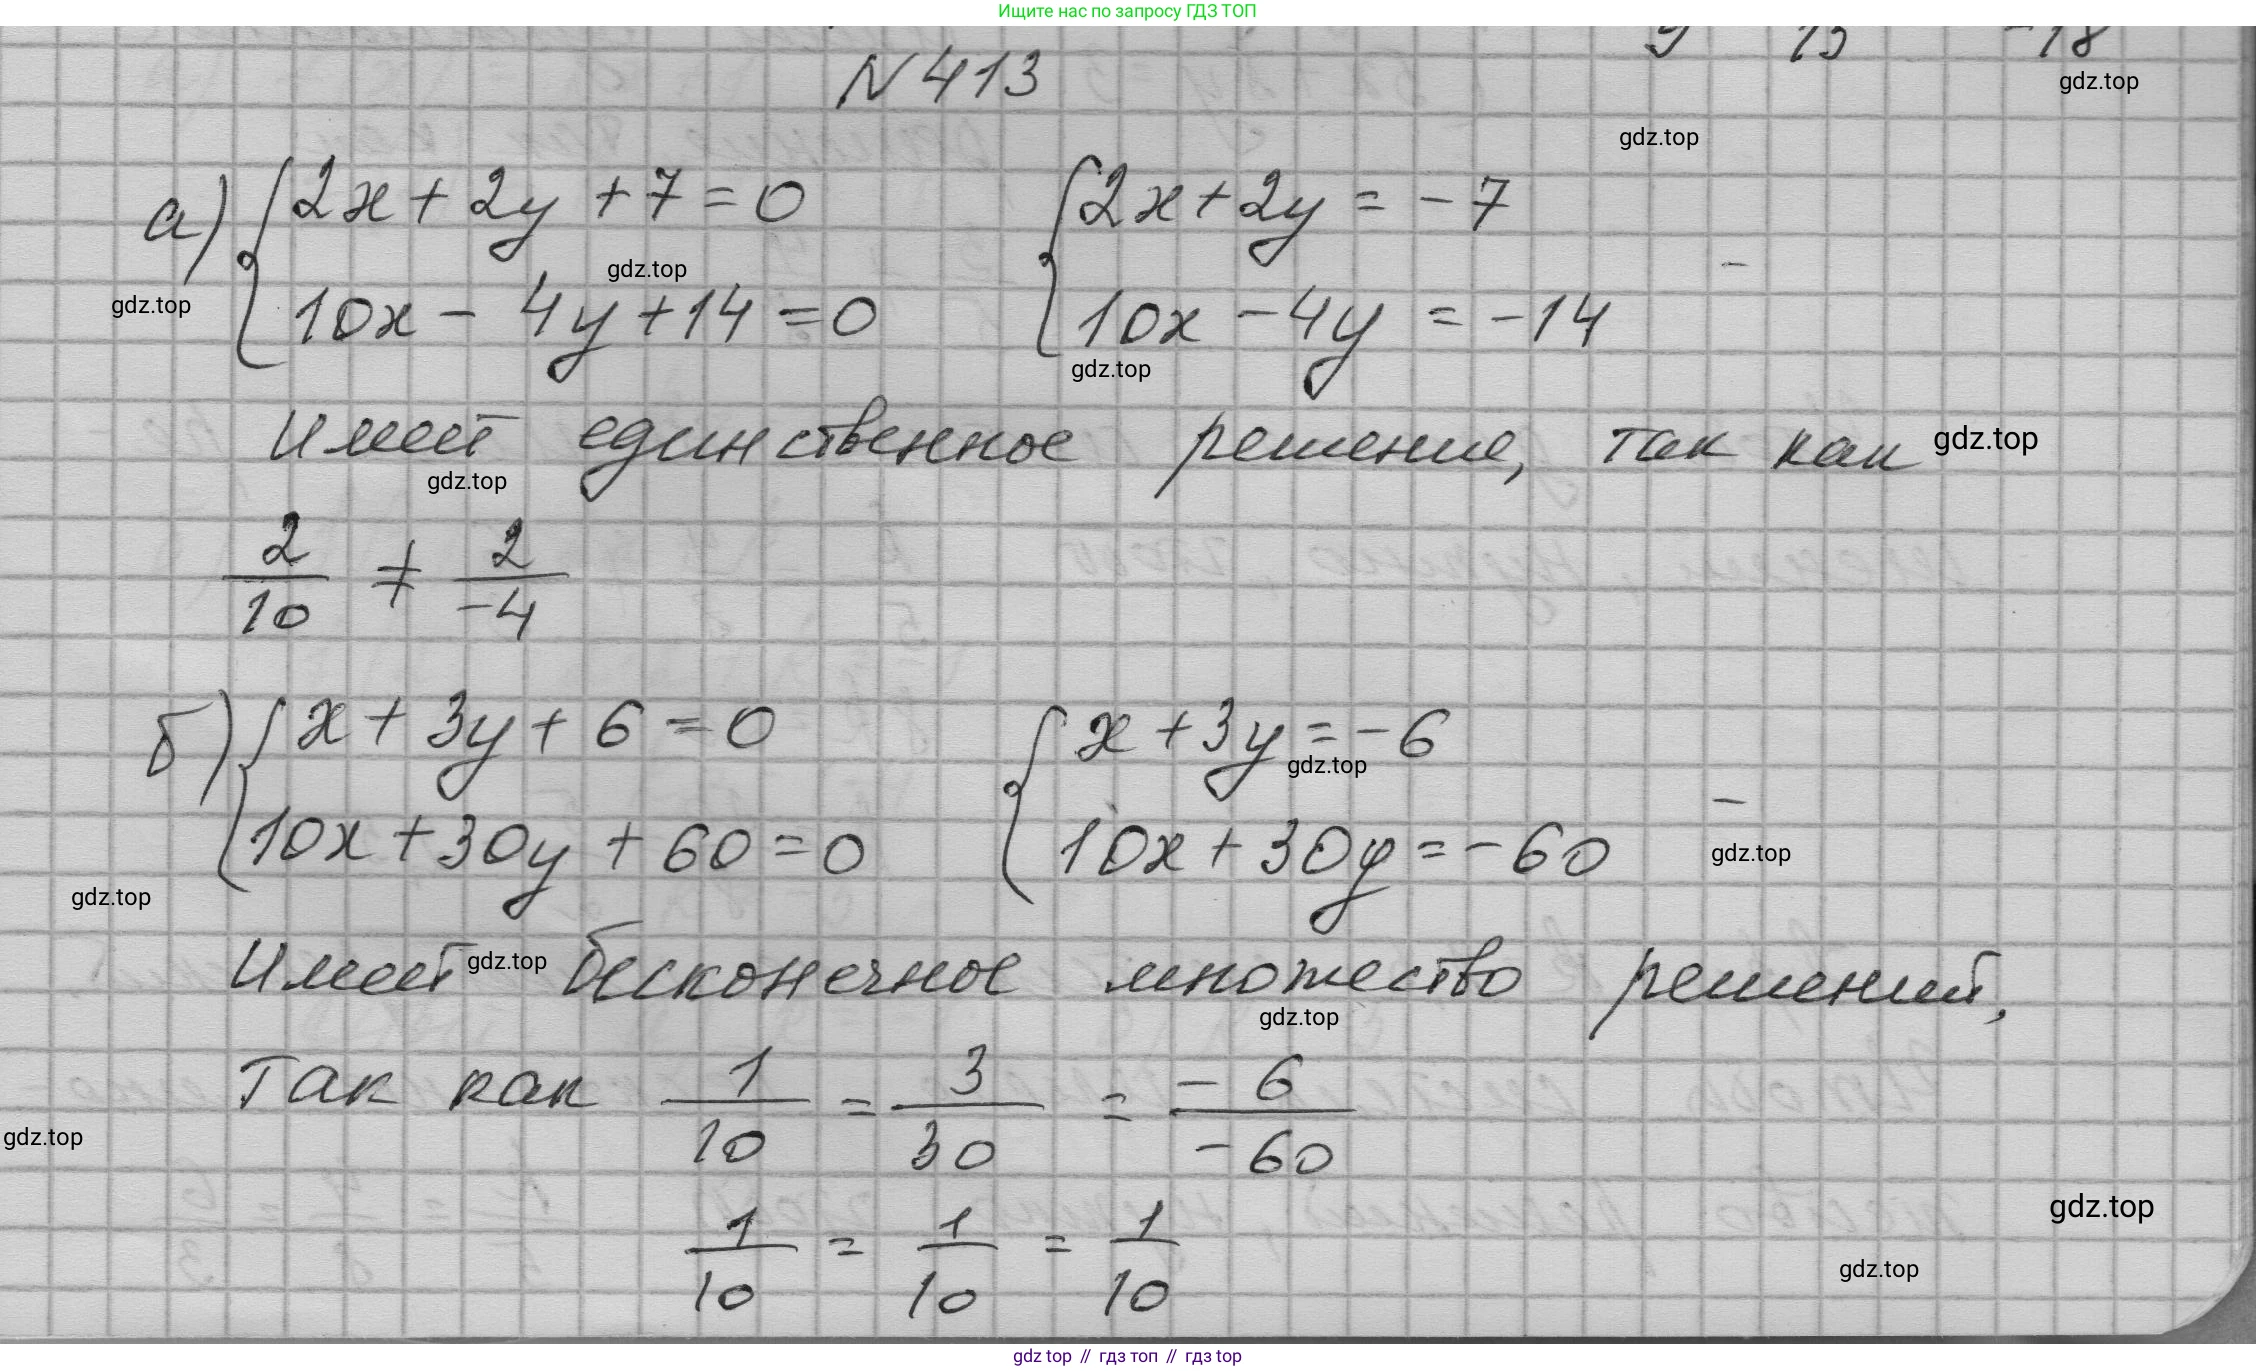 Ищите нас по запросу ГДЗ ТОП
9 15 -18
gdz.top
N 413
gdz.top
а) { 2x + 2y + 7 = 0 { 2x + 2y = -7
gdz.top
10x - 4y + 14 = 0 10x - 4y = -14
gdz.top gdz.top
Имеет единственное решение, так как gdz.top
gdz.top
2/10 ≠ 2/-4
б) { x + 3y + 6 = 0 { x + 3y = -6
gdz.top
10x + 30y + 60 = 0 10x + 30y = -60 gdz.top
gdz.top
Имеет gdz.top бесконечное множество решений,
gdz.top
Так как 1/10 = 3/30 = -6/-60
gdz.top
1/10 = 1/10 = 1/10
gdz.top
gdz.top
gdz top // гдз топ // гдз top